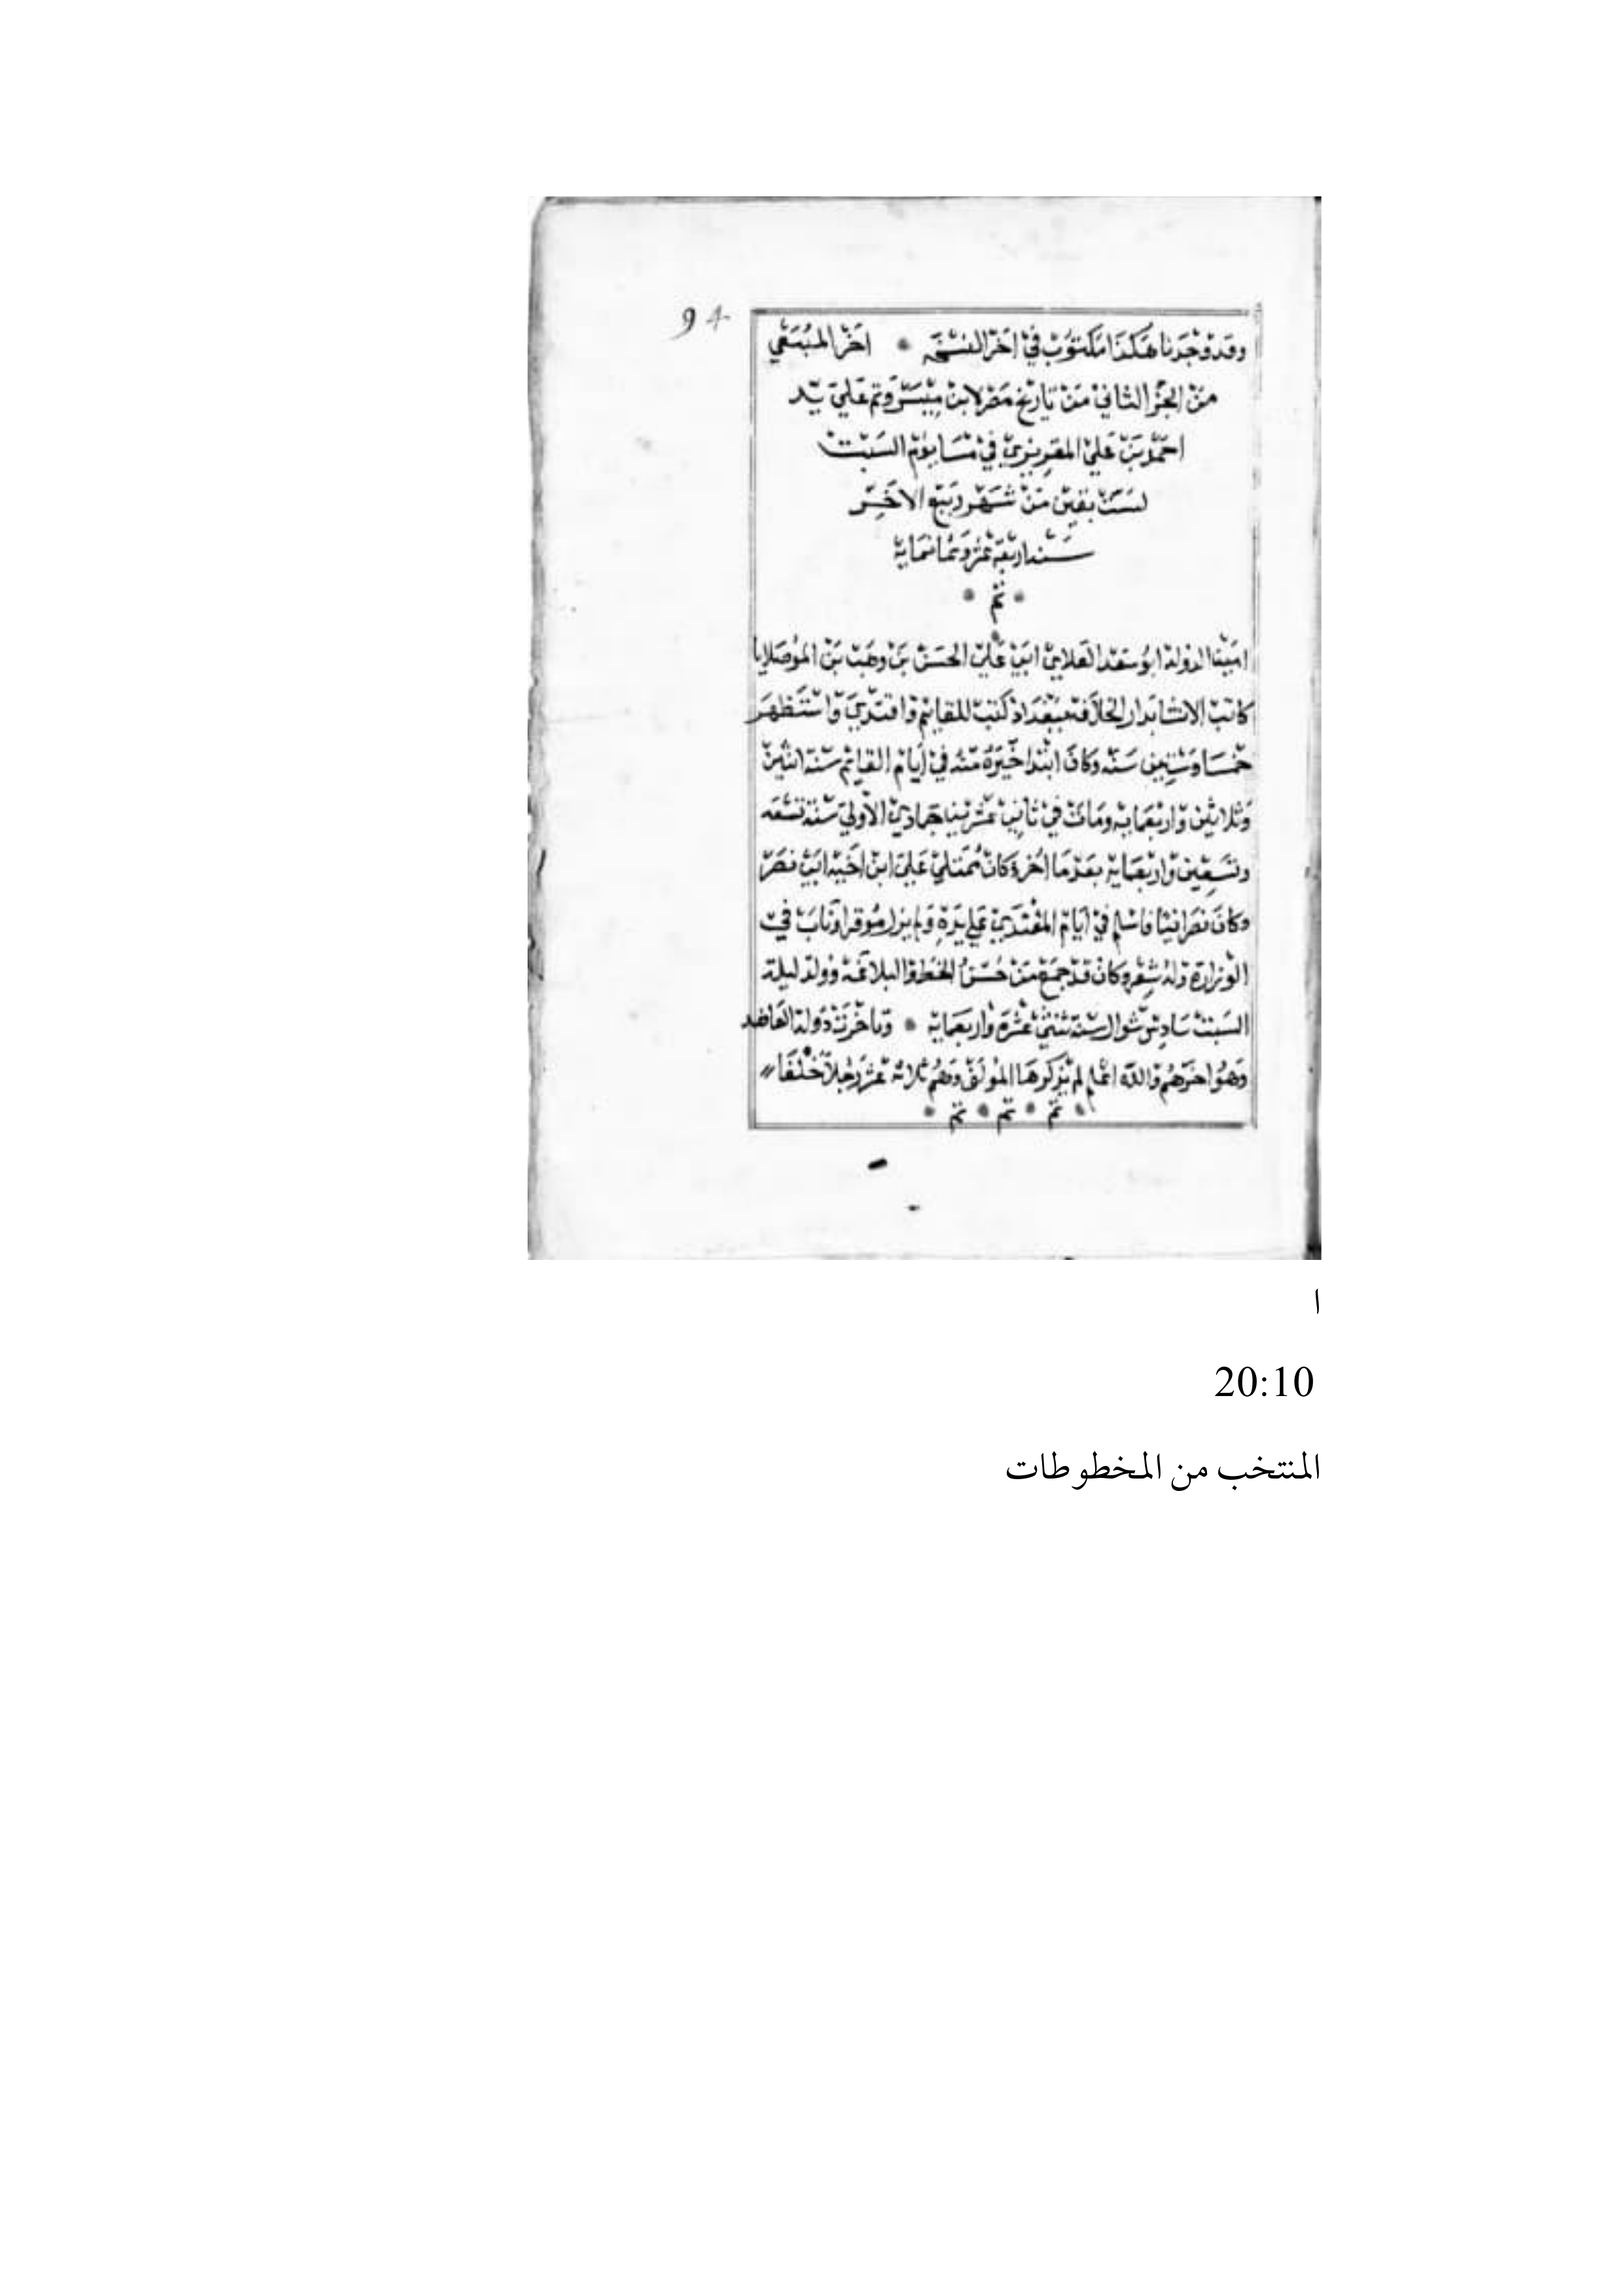 94
وقد وجدنا هكذا مكتوب في اخر النسخه * اخر المنتقي
من الجز الثاني من تاريخ مصر لابن ميسر وتم علي يد
احمد بن علي المقريزي في مسا يوم السبت
لست بقين من شهر ربيع الاخر
سنه اربعة عشر وثمانماية
* تم *
امين الدوله ابو سعد العلا بن ابي علي الحسن بن وهب بن الموصلايا
كاتب الانشا بدار الخلافه ببغداد كتب للقايم واقتدي واستظهر
خمسا وستين سنه وكان ابتدا خيره منه في ايام القايم سنة اثنين
وثلاثين واربعمايه ومات في ثاني عشرينيا جمادي الاولي سنة تسعه
وتسعين واربعماية بعد ما اخر وكان مملي علي ابن اخيه ابي نصر
وكان نصرانيا فاسلم في ايام المقتدي علي يده ولم يزل موقرا وناب في
الوزارة وله شعر وكان قد جمع من حسن الخط والبلاغه وولد ليلة
السبت سادس شوال سنة ثنتي عشرة واربعماية * وتاخرت دولة العاضد
وهو اخرهم والله اعلم لم يذكرها المولف وهم ثلاثه عشر رجلا خلفا
* تم * تم * تم *
ا
20:10
المنتخب من المخطوطات